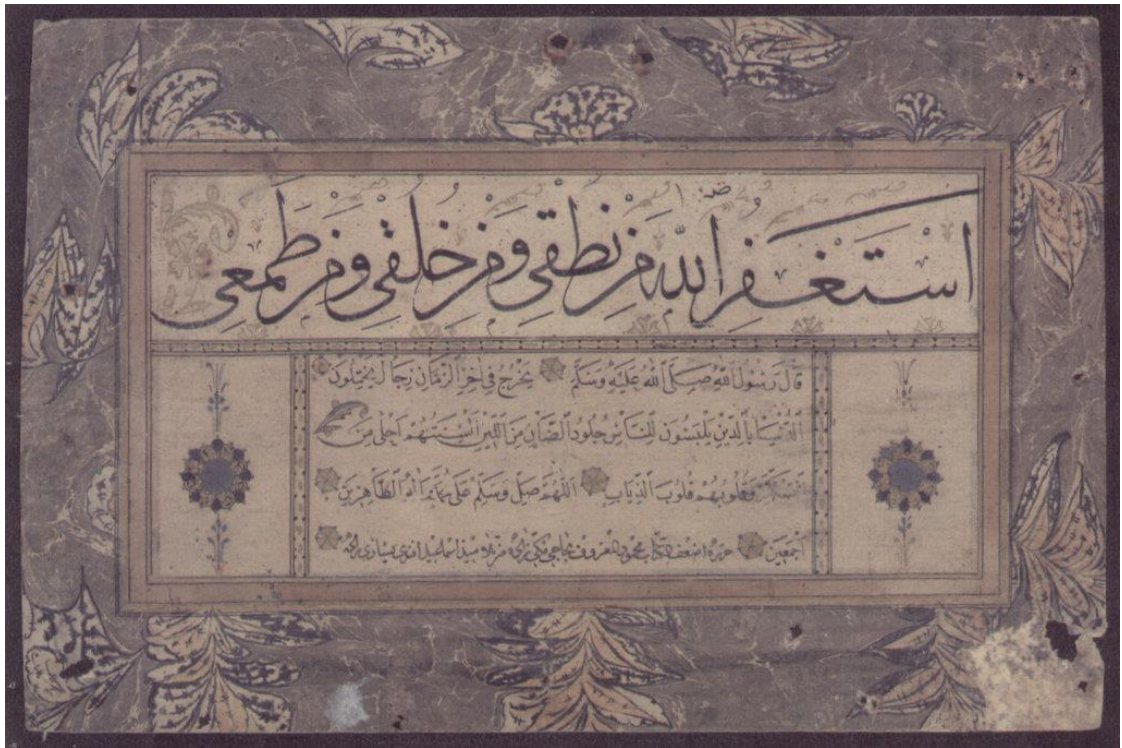 استغفر الله من نطقي ومن خلقي ومن طمعي
قال رسول الله صلى الله عليه وسلم يخرج في آخر الزمان رجال يختلون
الدنيا بالدين يلبسون للناس جلود الضان من اللين السنتهم احلى من
السكر وقلوبهم قلوب الذياب اللهم صل وسلم على محمد وآله الطاهرين
اجمعين حرره اضعف الكتاب محمود المعروف